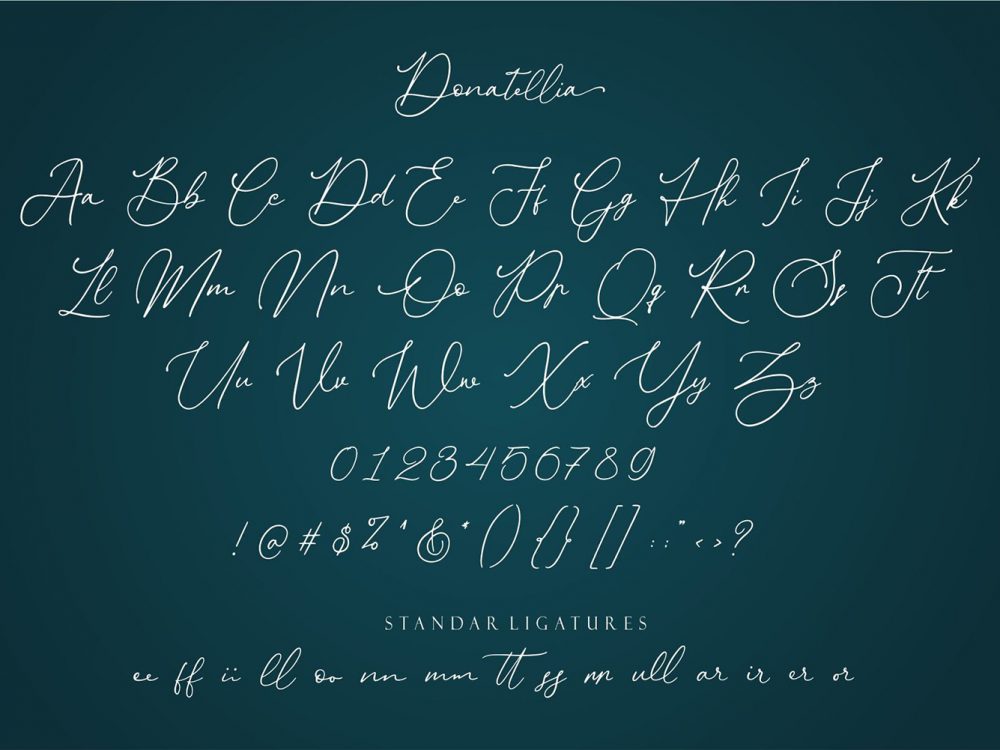 Donatellia
Aa Bb Cc Dd Ee Ff Gg Hh Ii Jj Kk
Ll Mm Nn Oo Pp Qq Rr Ss Tt
Uu Vv Ww Xx Yy Zz
0123456789
! @ # $ % ^ & * () {} [] : ; " < > ?
STANDAR LIGATURES
ee ff ii ll oo nn mm tt ss rr ull ar ir er or